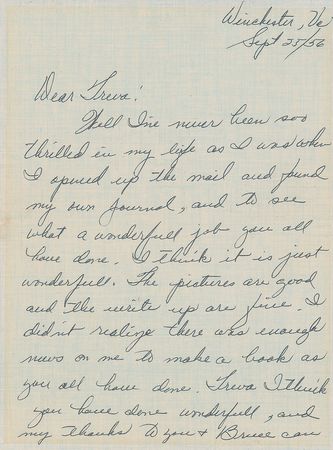 Winchester, Va
Sept 25/56
Dear Treva!
Well I've never been soo
thrilled in my life as I was when
I opened up the mail and found
my own Journal, and to see
what a wonderfull job you all
have done. I think it is just
wonderfull. The pictures are good
and the write up are fine. I
didn't realize there was enough
news on me to make a book as
you all have done. Treva I think
you have done wonderfull, and
my thanks to you + Bruce can